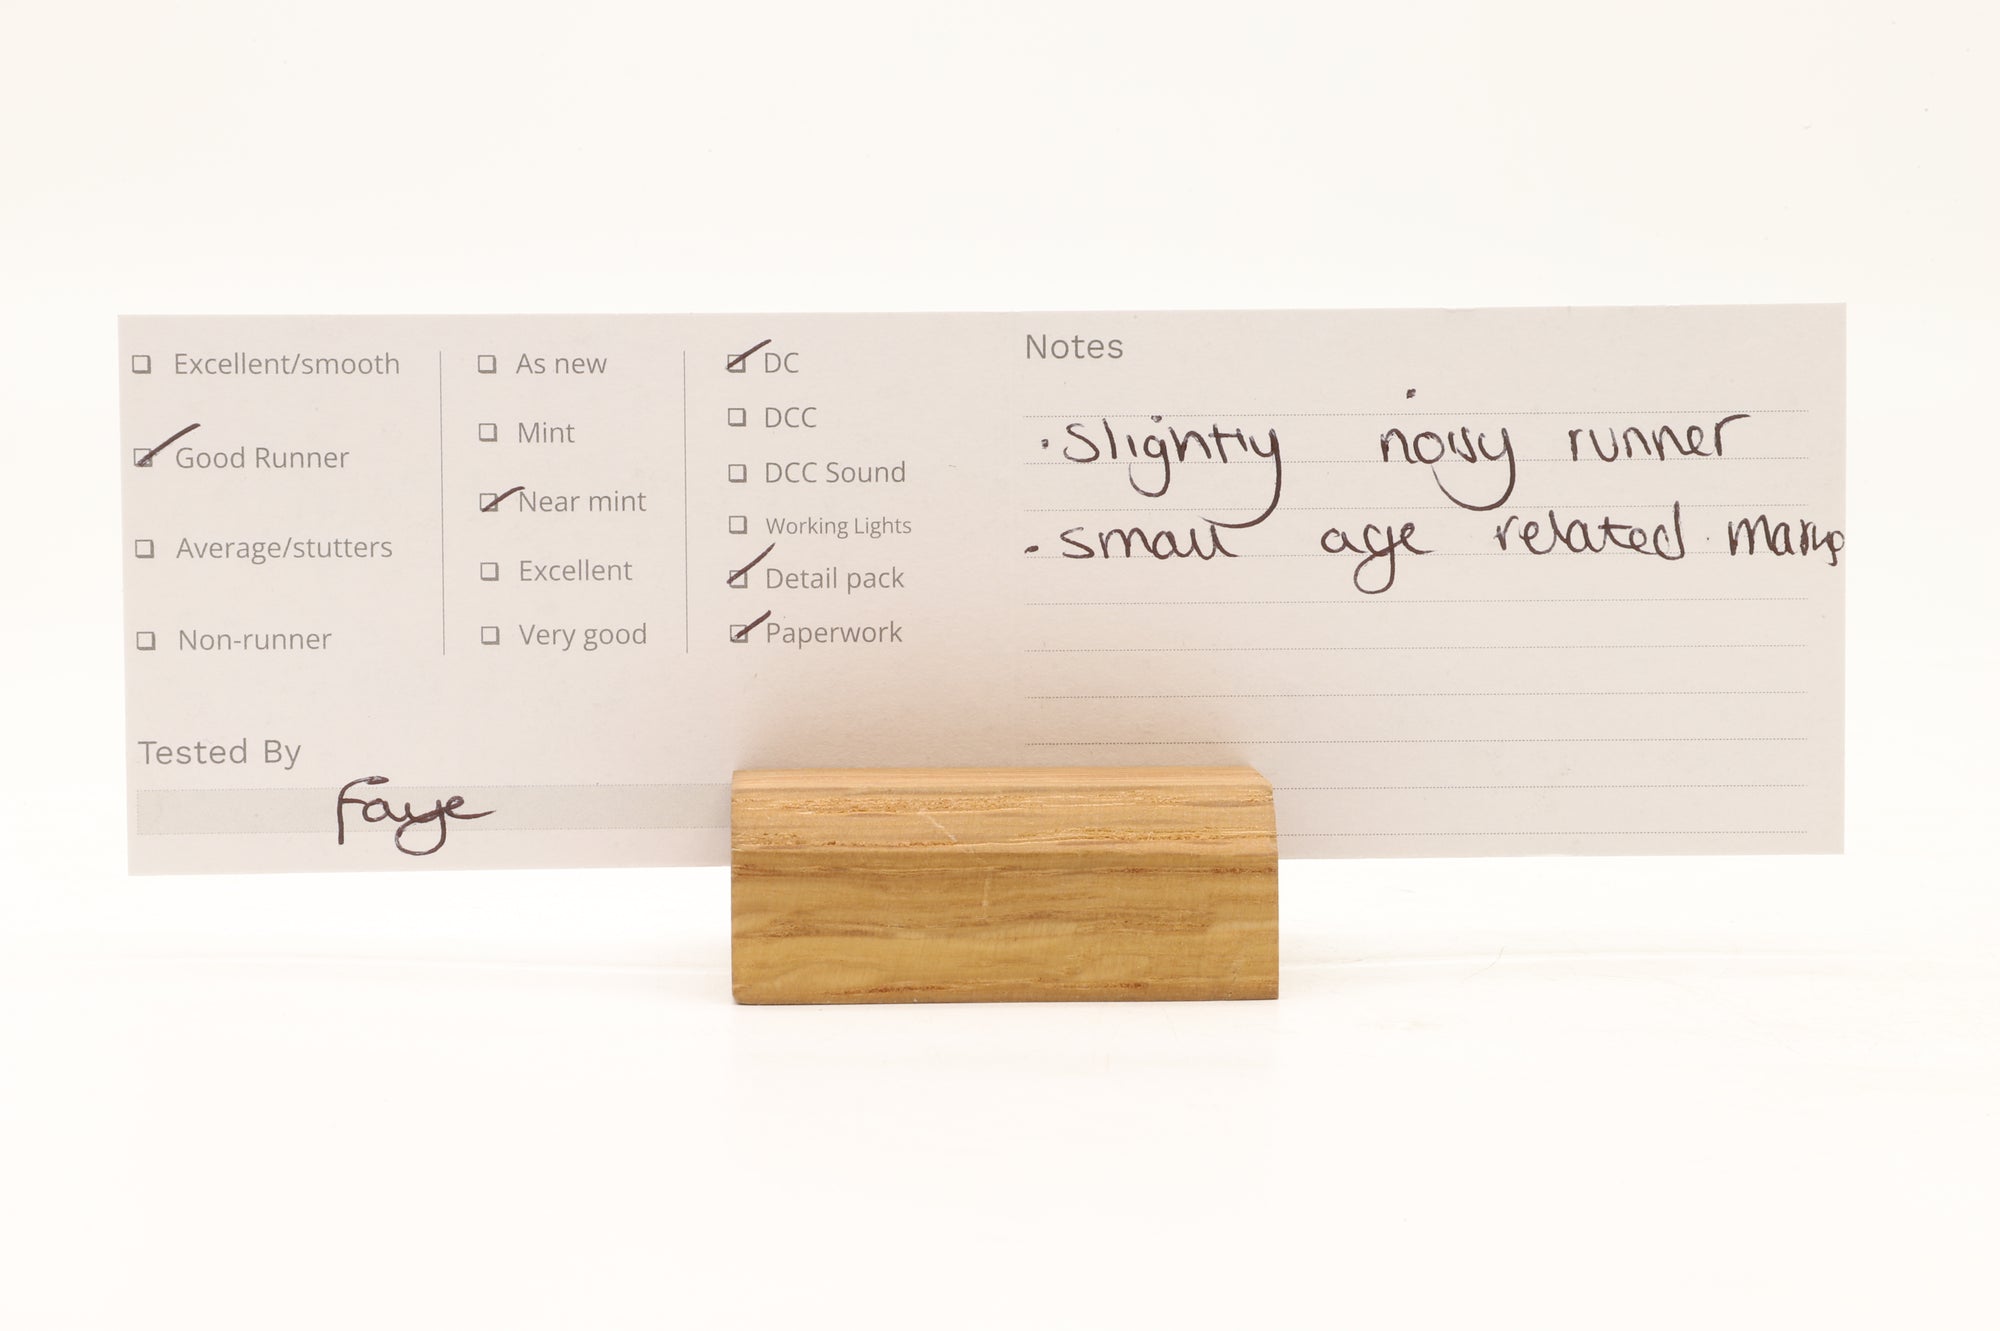 Excellent/smooth
Good Runner
Average/stutters
Non-runner
As new
Mint
Near mint
Excellent
Very good
DC
DCC
DCC Sound
Working Lights
Detail pack
Paperwork
Tested By
Faye
Notes
· Slightly noisy runner
- small age related marks